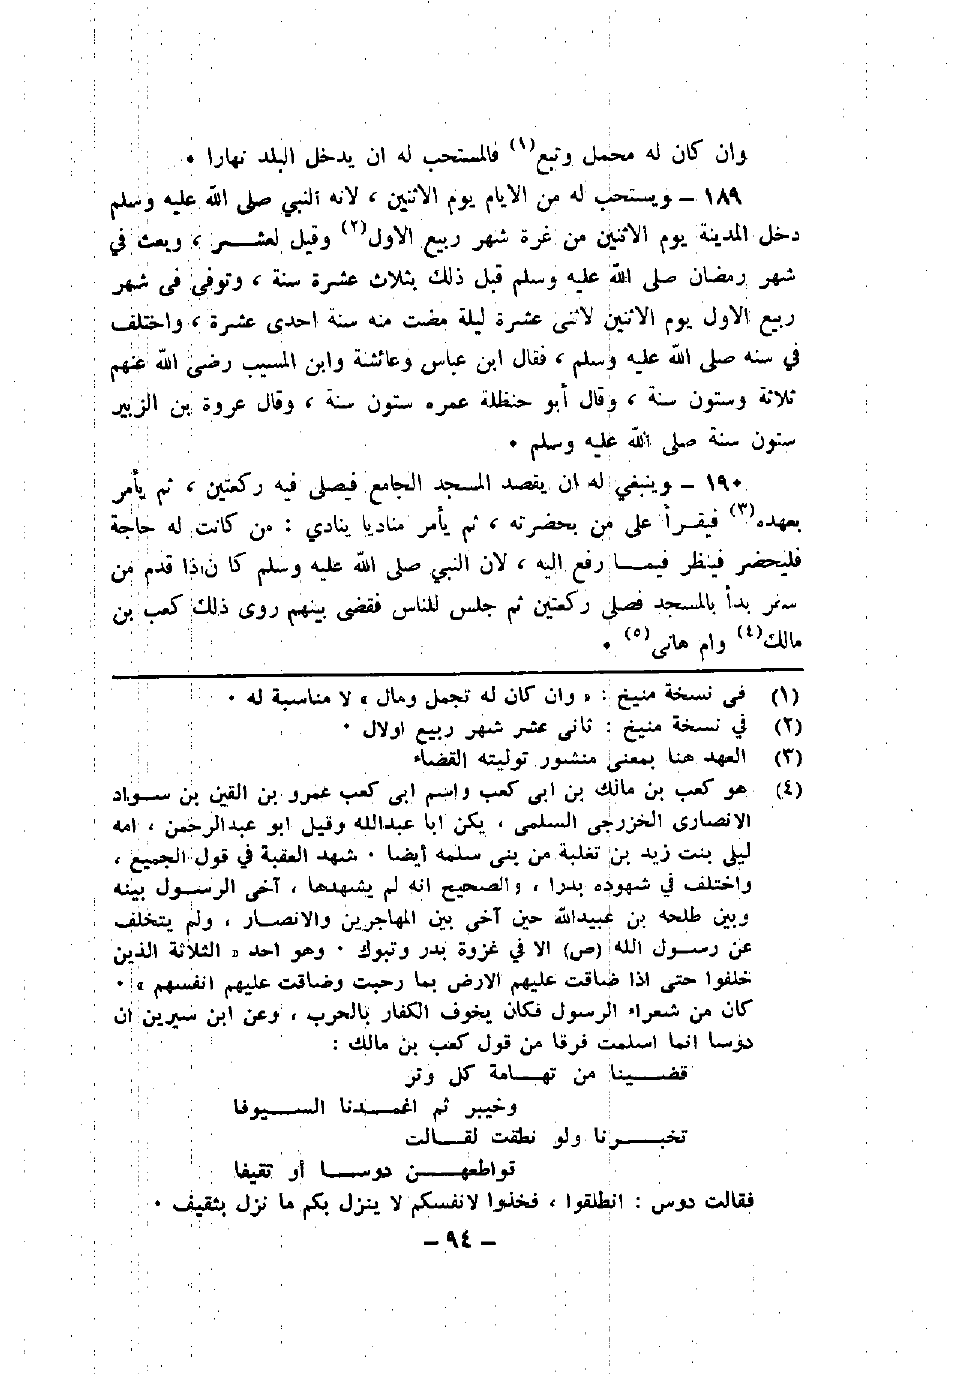 وان كان له محمل وتبع(١) فالمستحب له ان يدخل البلد نهارا ٠
١٨٩ – ويستحب له من الايام يوم الاثنين ، لانه النبي صلى الله عليه وسلم
دخل المدينة يوم الاثنين من غرة شهر ربيع الاول(٢) وقيل لعشــر ، وبعث في
شهر رمضان صلى الله عليه وسلم قبل ذلك بثلاث عشرة سنة ، وتوفي في شهر
ربيع الاول يوم الاثنين لاثنى عشرة ليلة مضت منه سنة احدى عشرة ، واختلف
في سنه صلى الله عليه وسلم ، فقال ابن عباس وعائشة وابن المسيب رضي الله عنهم
ثلاثة وستون سنة ، وقال أبو حنظلة عمره ستون سنة ، وقال عروة بن الزبير
ستون سنة صلى الله عليه وسلم ٠
١٩٠ – وينبغي له ان يقصد المسجد الجامع فيصلى فيه ركعتين ، ثم يأمر
بعهده(٣) فيقــرأ على من بحضرته ، ثم يأمر مناديا ينادي : من كانت له حاجة
فليحضر فينظر فيمــا رفع اليه ، لان النبي صلى الله عليه وسلم كا ن‌اذا قدم من
سفر بدأ بالمسجد فصلى ركعتين ثم جلس للناس فقضى بينهم روى ذلك كعب بن
مالك(٤) وام هانى(٥) ٠
(١) في نسخة منيخ : « وان كان له تجمل ومال » لا مناسبة له ٠
(٢) في نسخة منيخ : ثانى عشر شهر ربيع اولال ٠
(٣) العهد هنا بمعنى منشور توليته القضاء
(٤) هو كعب بن مالك بن ابى كعب واسم ابى كعب عمرو بن القين بن ســواد
الانصارى الخزرجى السلمى ، يكن ابا عبدالله وقيل ابو عبدالرحمن ، امه
ليلى بنت زيد بن ثعلبة من بنى سلمه أيضا ٠ شهد العقبة في قول الجميع ،
واختلف في شهوده بدرا ، والصحيح انه لم يشهدها ، آخى الرســول بينه
وبين طلحه بن عبيدالله حين آخى بين المهاجرين والانصــار ، ولم يتخلف
عن رســول الله (ص) الا في غزوة بدر وتبوك ٠ وهو احد « الثلاثة الذين
خلفوا حتى اذا ضاقت عليهم الارض بما رحبت وضاقت عليهم انفسهم » ٠
كان من شعراء الرسول فكان يخوف الكفار بالحرب ، وعن ابن سيرين ان
دوسا انما اسلمت فرقا من قول كعب بن مالك :
قضــــينا من تهــامة كل وتر
وخيبر ثم اغمــدنا الســـيوفا
تخبـــرنا ولو نطقت لقــالت
قواطعهـــن دوســـا أو ثقيفا
فقالت دوس : انطلقوا ، فخذوا لانفسكم لا ينزل بكم ما نزل بثقيف ٠
– ٩٤ –